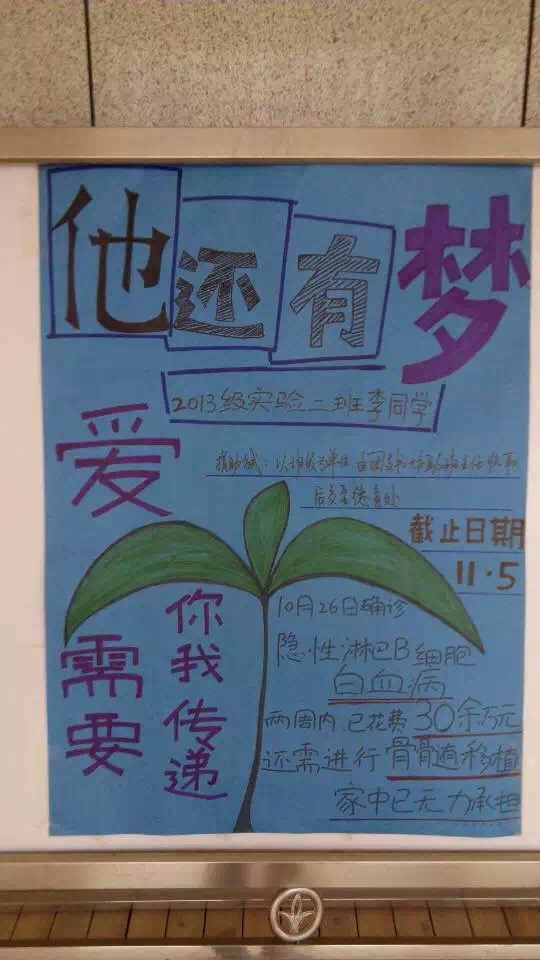 他还有梦
2013级实验二班李同学
捐助方式：以班级为单位 由团支书
后交至德育处
截止日期
11·5
爱
需要
你我传递
10月26日确诊
隐性淋巴B细胞
白血病
两周内已花费30余万元
还需进行骨骨随移植
家中已无力承担